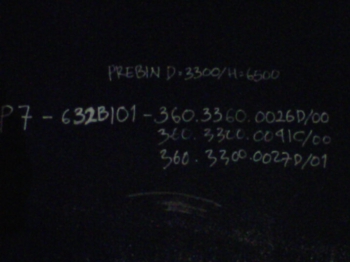 PREBIN D=3300/H=6500
P7-632B101-360.3360.0026D/00
360.3300.0091C/00
360.3300.0027D/01